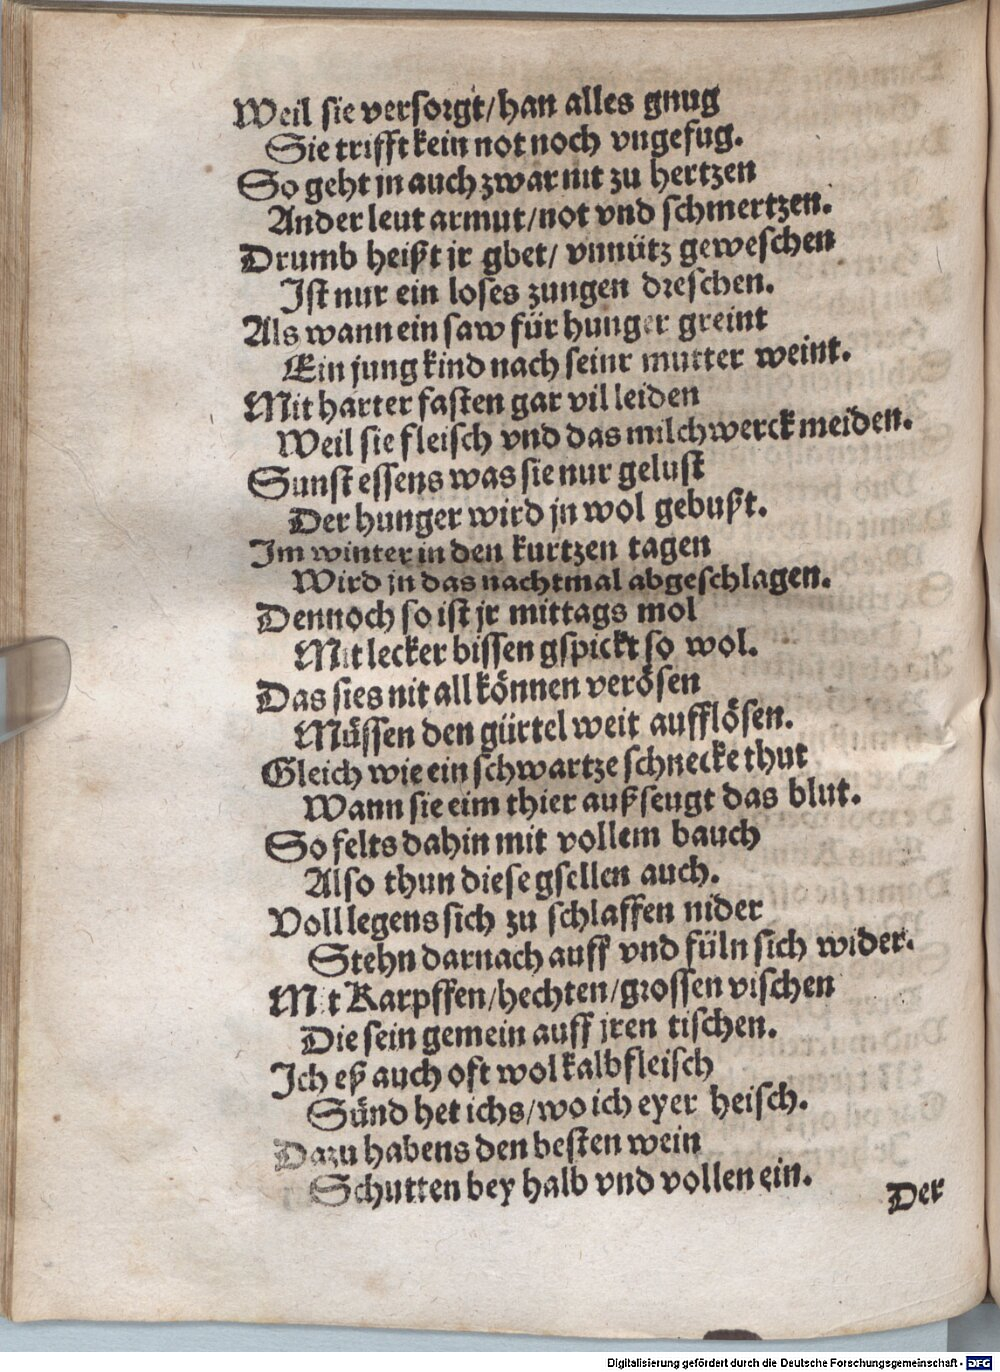 Weil sie versorgt/han alles gnug
Sie trifft kein not noch vngefug.
So geht in auch zwar nit zu hertzen
Ander leut armut/not vnd schmertzen.
Drumb heißt jr gbet/ vnnütz geweschen
Ist nur ein loses zungen dreschen.
Als wann ein saw für hunger greint
Ein jung kind nach seinr mutter weint.
Mit harter fasten gar vil leiden
Weil sie fleisch vnd das milchwerck meiden.
Sunst essens was sie nur gelust
Der hunger wird jn wol gebußt.
Im winter in den kurtzen tagen
Wird jn das nachtmal abgeschlagen.
Dennoch so ist jr mittags mol
Mit lecker bissen gspickt so wol.
Das sies nit all können verösen
Müssen den gürtel weit aufflösen.
Gleich wie ein schwartze schnecke thut
Wann sie eim thier außseugt das blut.
So felts dahin mit vollem bauch
Also thun diese gsellen auch.
Voll legens sich zu schlaffen nider
Stehn darnach auff vnd füln sich wider.
Mit Karpffen/hechten/grossen vischen
Die sein gemein auff jren tischen.
Ich eß auch oft wol kalbfleisch
Sünd het ichs/wo ich eyer heisch.
Dazu habens den besten wein
Schutten bey halb vnd vollen ein.
Der
Digitalisierung gefördert durch die Deutsche Forschungsgemeinschaft - DFG